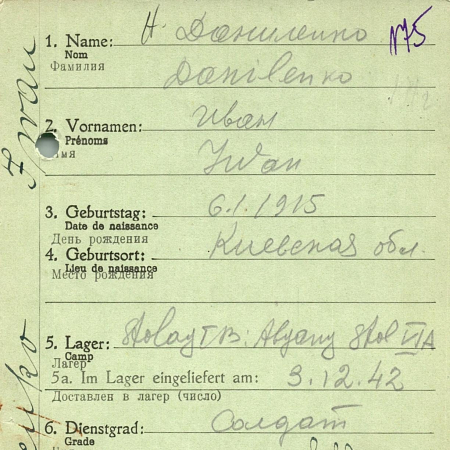 н. Даниленко
N75
1. Name:
Nom
Фамилия
Danilenko
Иван
2. Vornamen:
Prénoms
Имя
Iwan
3. Geburtstag: 6.1.1915
Date de naissance
День рождения
4. Geburtsort: Киевская обл.
Lieu de naissance
Место рождения
5. Lager: Stalag I B: Abgang Stal VI A
Camp
Лагер
5a. Im Lager eingeliefert am: 3.12.42
Доставлен в лагер (число)
6. Dienstgrad: Солдат
Grade
Iwan